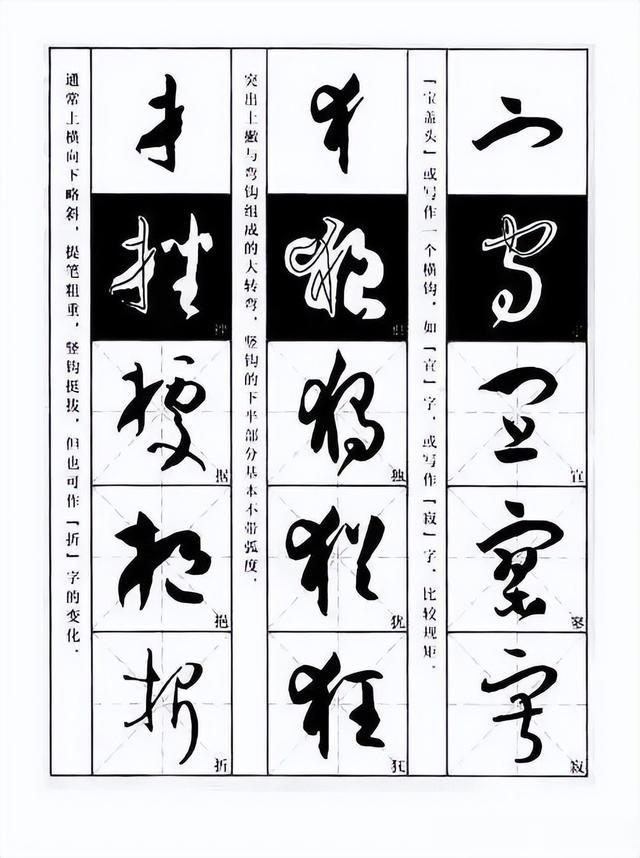 宣
寂
「宝盖头」或写作一个横钩，如「宣」字，或写作「寂」字，比较规矩。
独
犹
狂
突出上撇与弯钩组成的大转弯，竖钩的下半部分基本不带弧度。
据
折
通常上横向下略斜，提笔粗重，竖钩挺拔，但也可作「折」字的变化。